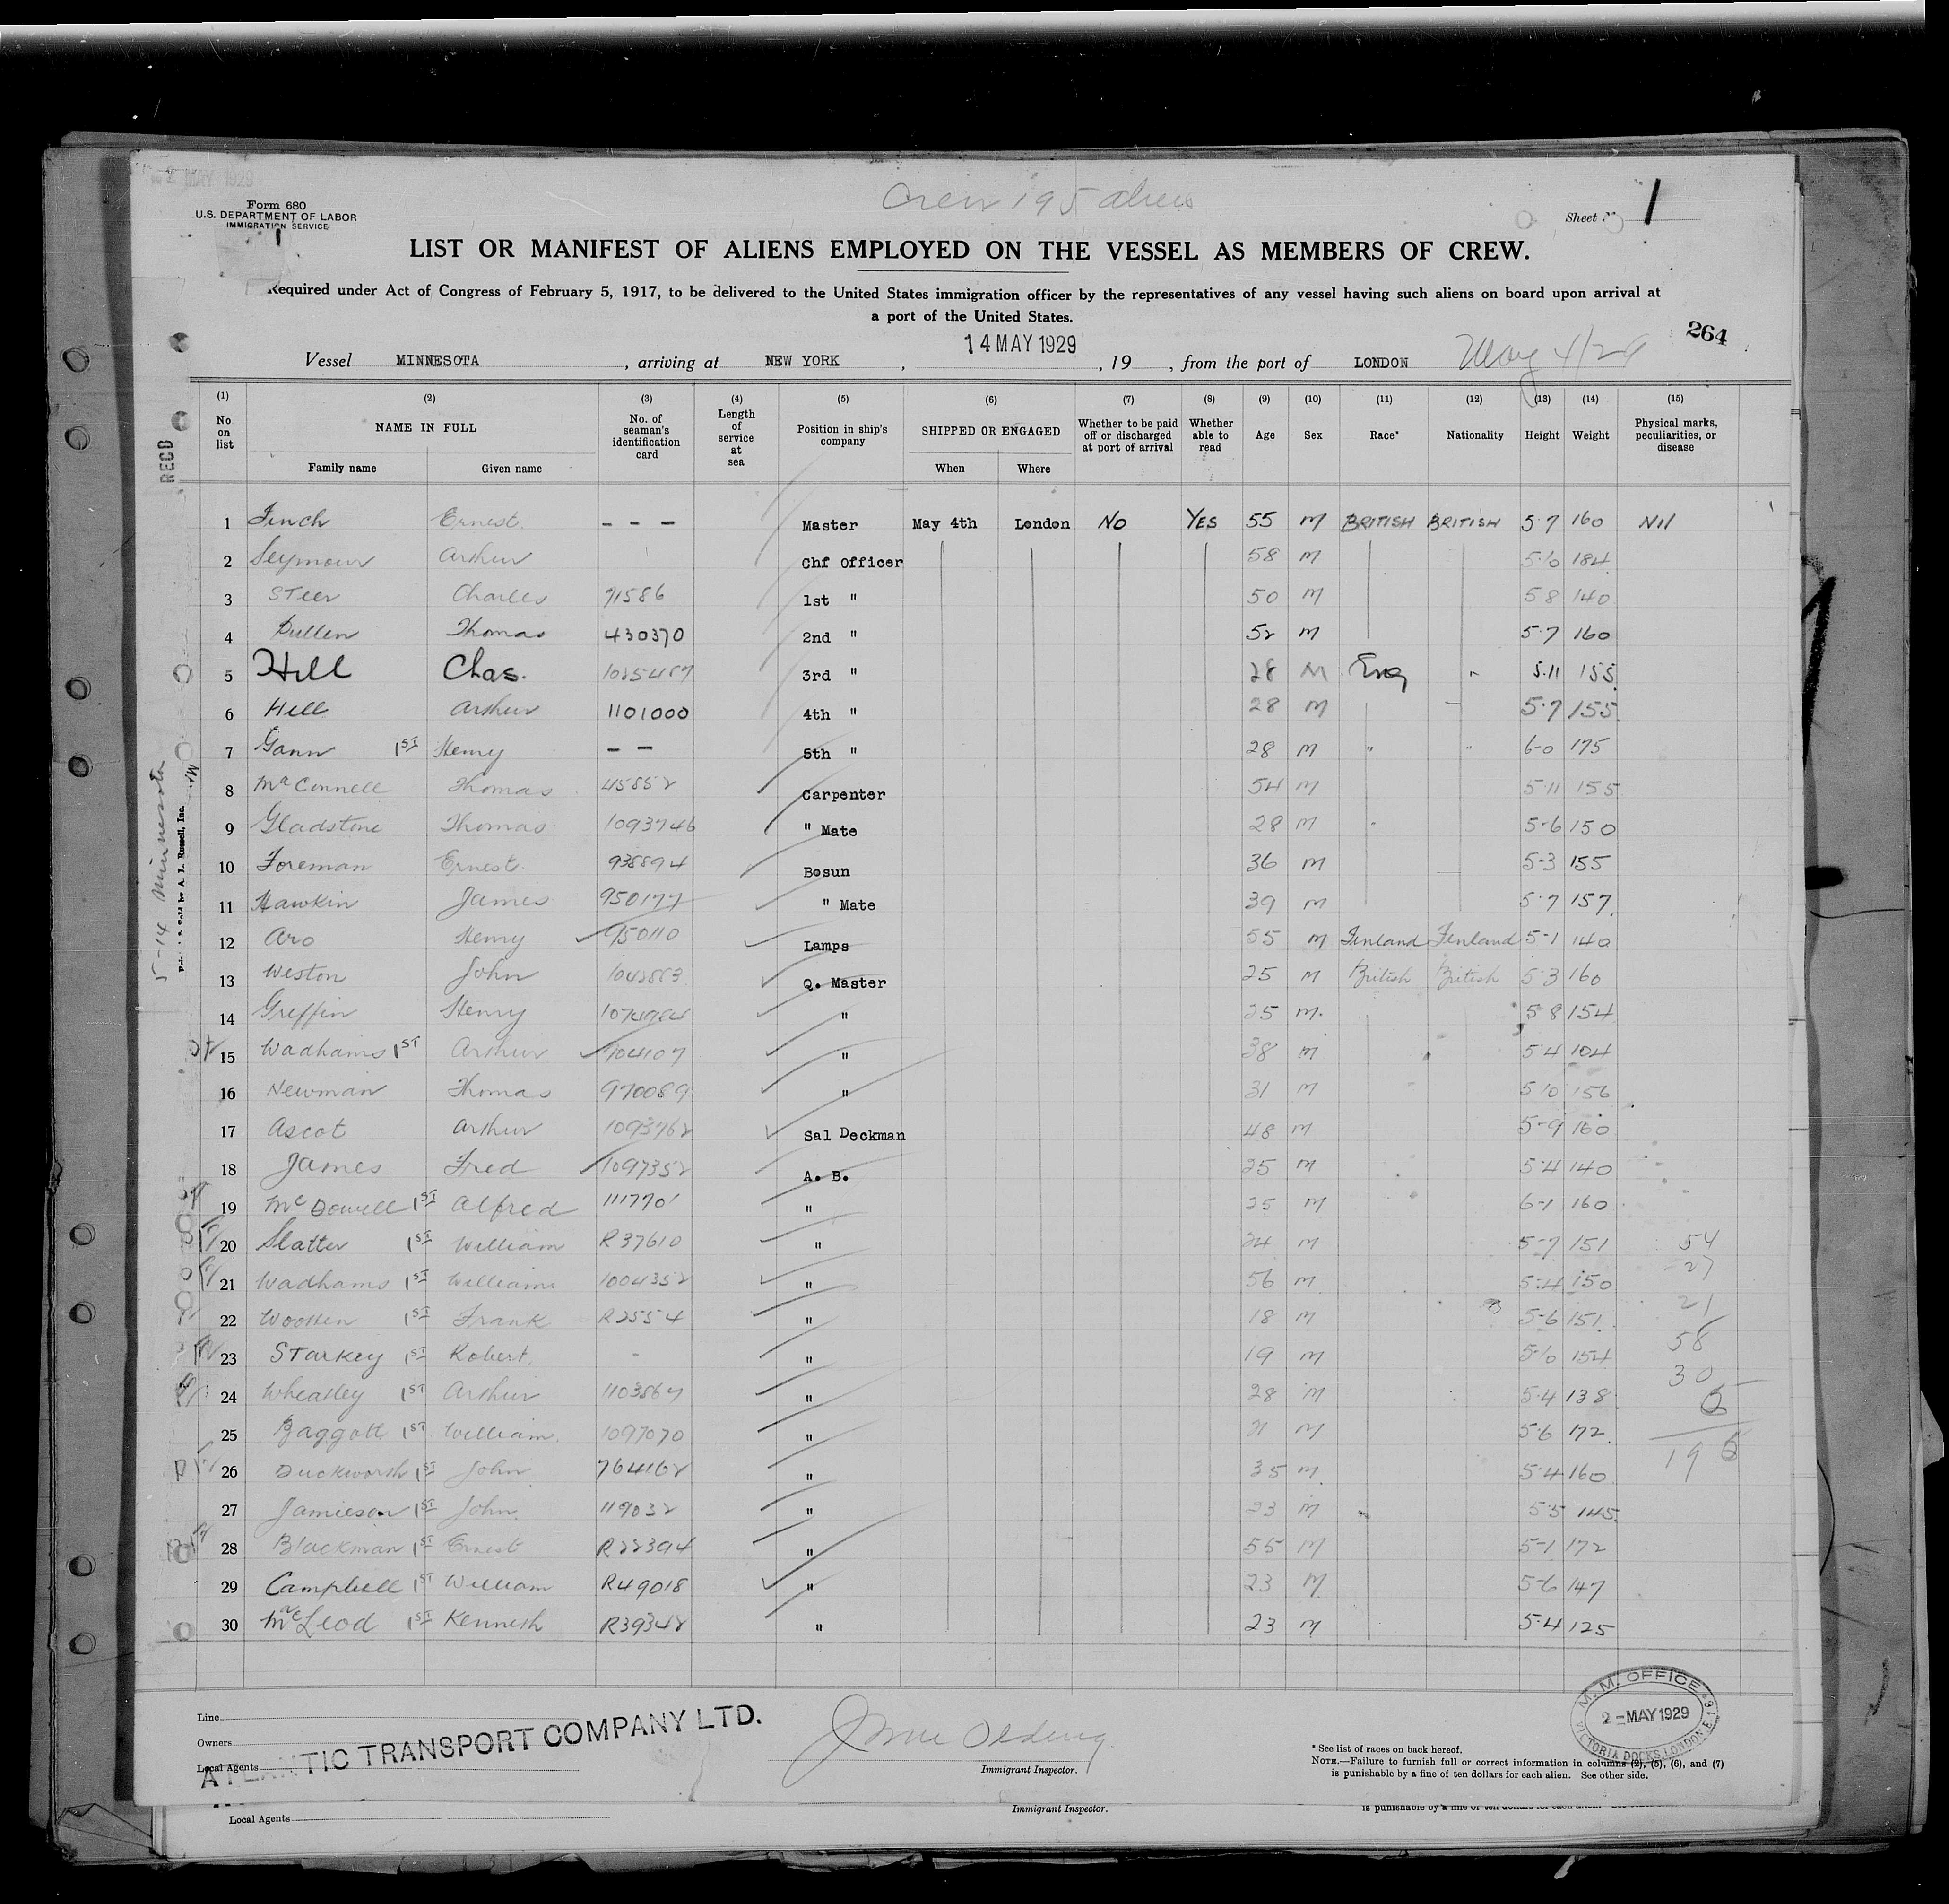 2 MAY 1929
Form 680
U.S. DEPARTMENT OF LABOR
IMMIGRATION SERVICE
Crew 195 aliens
Sheet No 1
LIST OR MANIFEST OF ALIENS EMPLOYED ON THE VESSEL AS MEMBERS OF CREW.
Required under Act of Congress of February 5, 1917, to be delivered to the United States immigration officer by the representatives of any vessel having such aliens on board upon arrival at
a port of the United States.
264
Vessel MINNESOTA, arriving at NEW YORK, 14 MAY 1929, 19 , from the port of LONDON May 4/29
(1) No on list (2) NAME IN FULL Family name Given name (3) No. of seaman's identification card (4) Length of service at sea (5) Position in ship's company (6) SHIPPED OR ENGAGED When Where (7) Whether to be paid off or discharged at port of arrival (8) Whether able to read (9) Age (10) Sex (11) Race* (12) Nationality (13) Height (14) Weight (15) Physical marks, peculiarities, or disease
1 Finch Ernest. - - - Master May 4th London No YES 55 M BRITISH BRITISH 5-7 160 Nil
2 Seymour Arthur Chf Officer 58 M 5-10 184
3 Steer Charles 71586 1st " 50 M 5 8 140
4 Pullen Thomas 430370 2nd " 52 M 5-7 160
5 Hill Chas. 3rd " 28 M Eng " 5.11 155
6 Hill Arthur 1101000 4th " 28 M 5-7 155
7 Gann 1ST Henry - - 5th " 28 M " " 6-0 175
8 McConnell Thomas 45852 Carpenter 54 M 5-11 155
9 Gladstone Thomas 1093746 " Mate 28 M " 5-6 150
10 Foreman Ernest. 938894 Bosun 36 M 5-3 155
11 Hawkin James 950177 " Mate 39 M 5-7 157
12 Aro Henry 950110 Lamps 55 M Finland Finland 5-1 140
13 Weston John Q. Master 25 M British British 5 3 160
14 Griffin Henry " 25 M. 5 8 154
15 Wadhams 1ST Arthur 104107 " 38 M 5 4 104
16 Newman Thomas 970089 " 31 M 5 10 156
17 Ascot Arthur 1093762 Sal Deckman 48 M 5-9 160
18 James Fred 1097352 A. B. 25 M 5-4 140
19 McDowell 1ST Alfred 1117701 " 25 M 6-1 160
20 Slatter 1ST William R 37610 " 24 M 5-7 151 54
21 Wadhams 1ST William 1004352 " 56 M 5-4 150 27
22 Wootten 1ST Frank R 25554 " 18 M 5-6 151 21
23 Starkey 1ST Robert - " 19 M 5-10 154 58
24 Wheatley 1ST Arthur 1103867 " 28 M 5-4 138 30
25 Baggott 1ST William. 1097070 " 21 M 5-6 172
26 Duckworth 1ST John 764162 " 35 M 5-4 160
27 Jamieson 1ST John 119032 " 23 M 5-5 145
28 Blackman 1ST Ernest R22394 " 55 M 5-1 172
29 Campbell 1ST William R49018 " 23 M 5-6 147
30 McLeod 1ST Kenneth R39342 " 23 M 5-4 125
RECD
5-14 Minnesota
Line
Owners
Local Agents
ATLANTIC TRANSPORT COMPANY LTD.
Immigrant Inspector.
M.M. OFFICE
2-MAY1929
VICTORIA DOCKS, LONDON E.
* See list of races on back hereof.
NOTE.—Failure to furnish full or correct information in columns (2), (5), (6), and (7)
is punishable by a fine of ten dollars for each alien. See other side.
Local Agents
Immigrant Inspector.
is punishable by a fine of ten dollars for each alien.